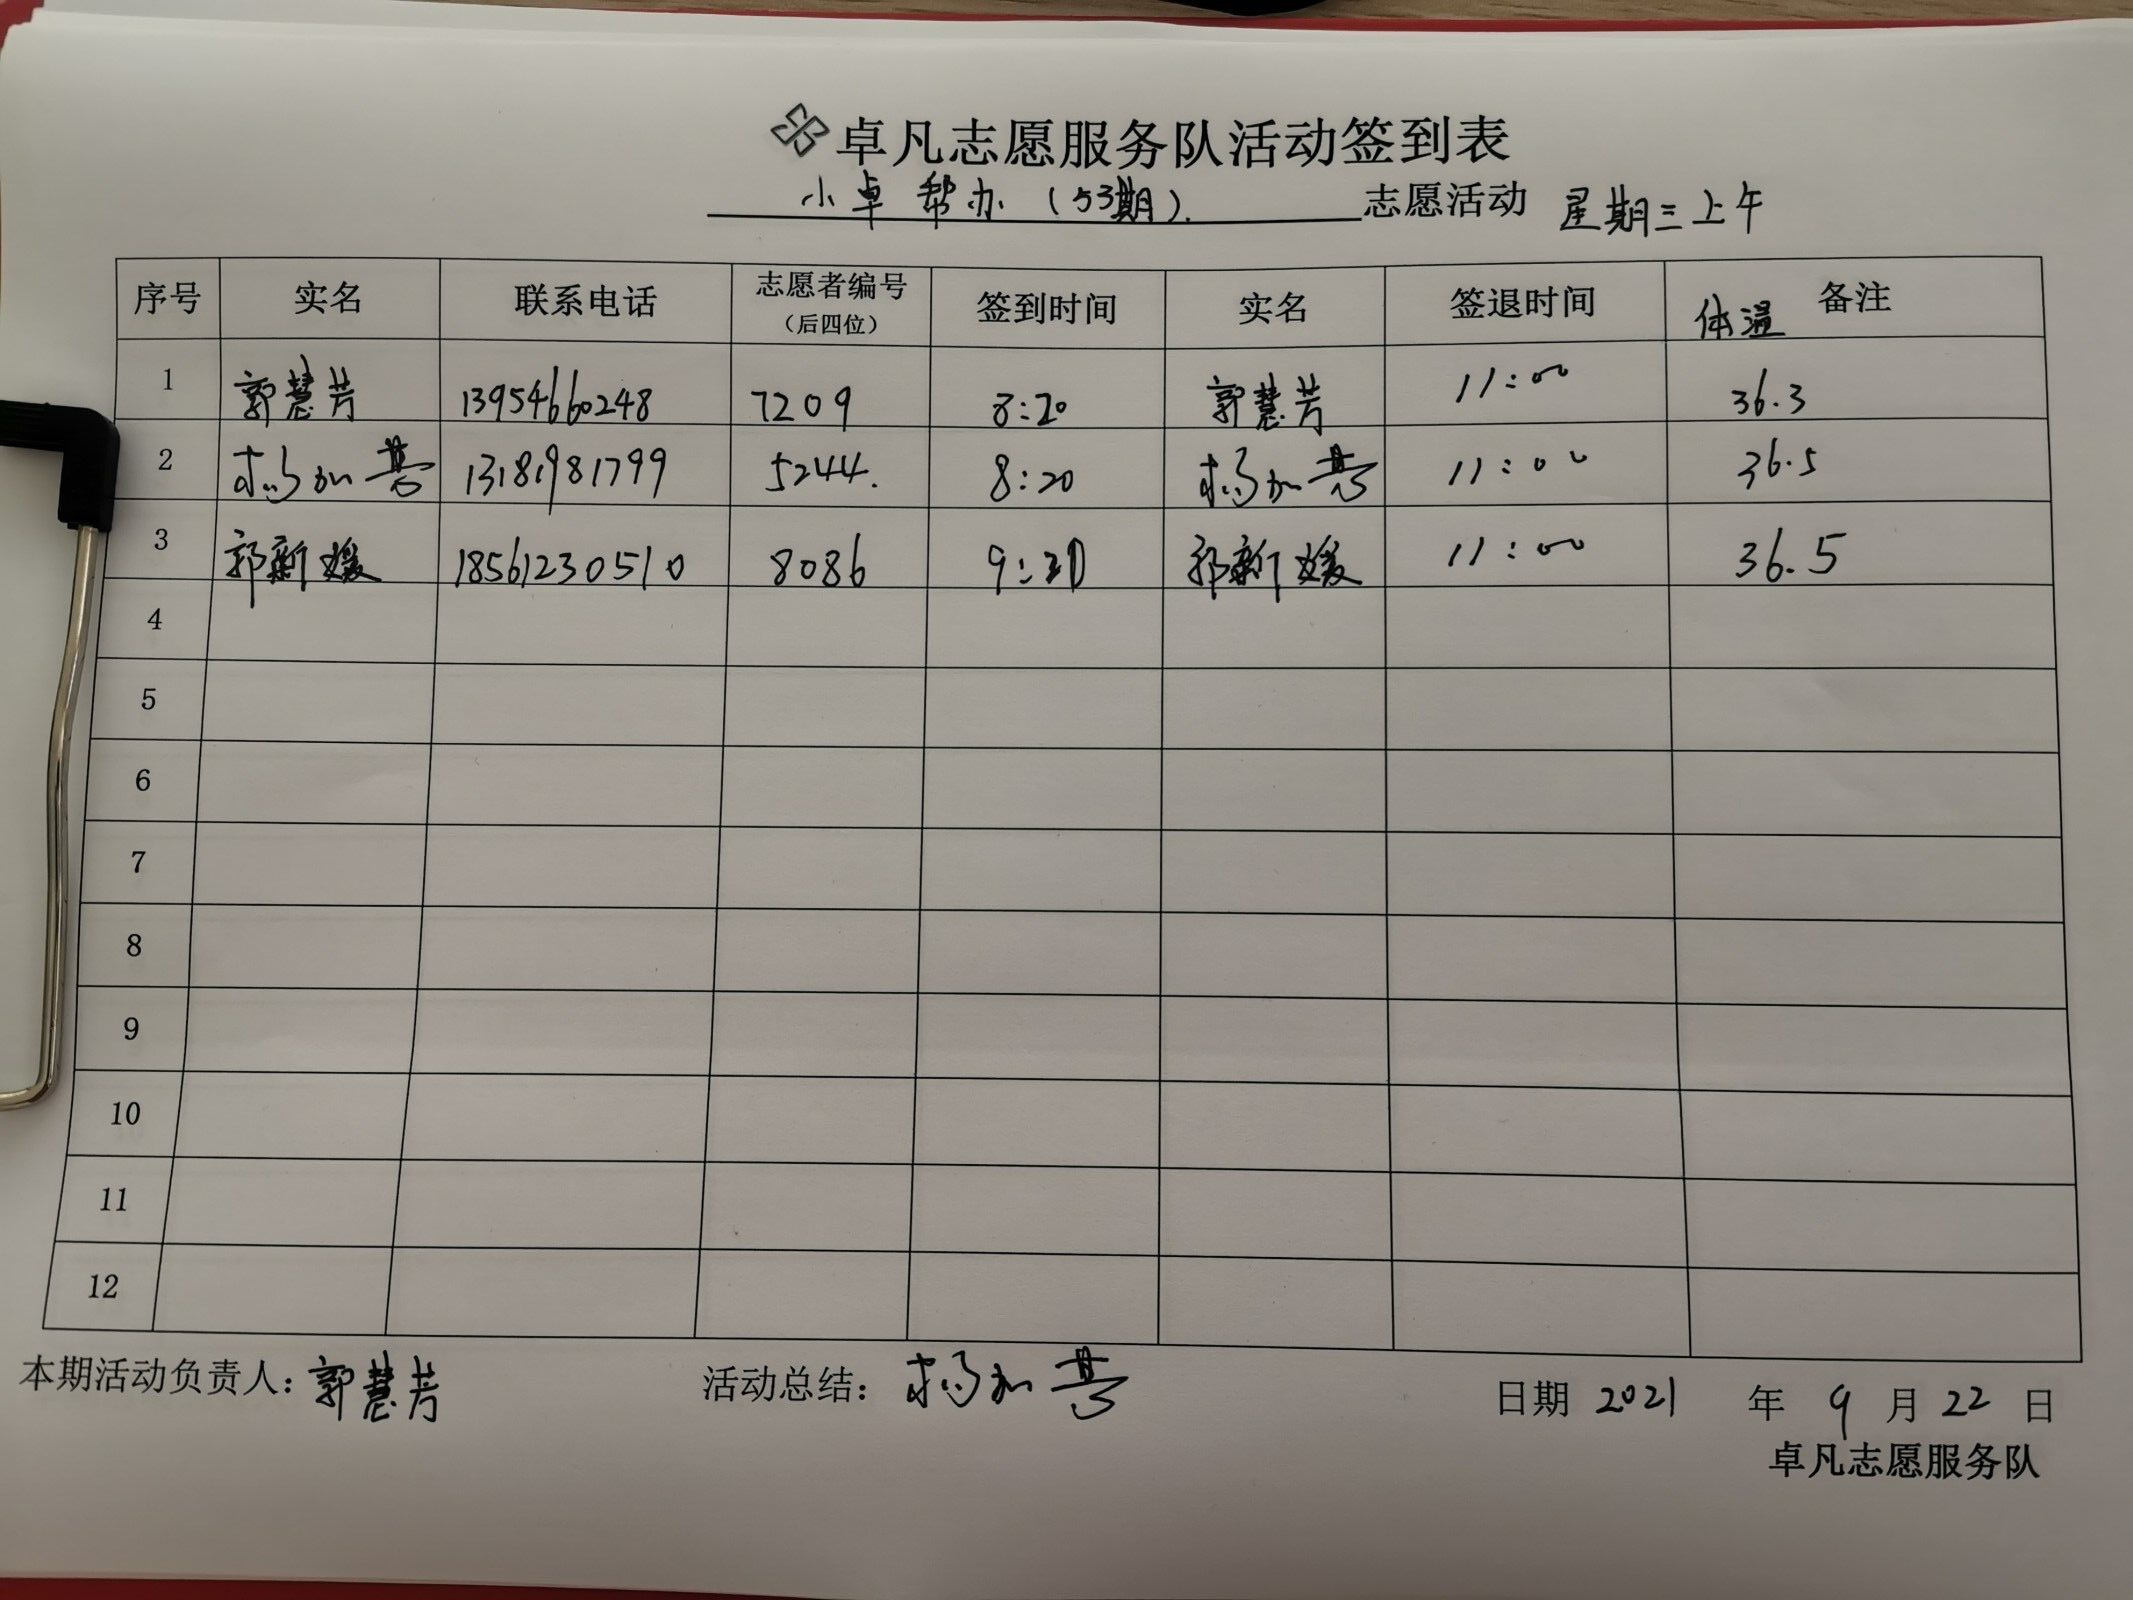 卓凡志愿服务队活动签到表
小卓帮办（53期）. 志愿活动 星期三上午
序号 实名 联系电话 志愿者编号（后四位） 签到时间 实名 签退时间 体温 备注
1 郭慧芳 13954660248 7209 8:20 郭慧芳 11:00 36.3
2 杨加 13181981799 5244. 8:20 杨加 11:00 36.5
3 郭新媛 18561230510 8086 9: 郭新媛 11:00 36.5
4
5
6
7
8
9
10
11
12
本期活动负责人：郭慧芳 活动总结：杨加 日期 2021 年 9 月 22 日
卓凡志愿服务队